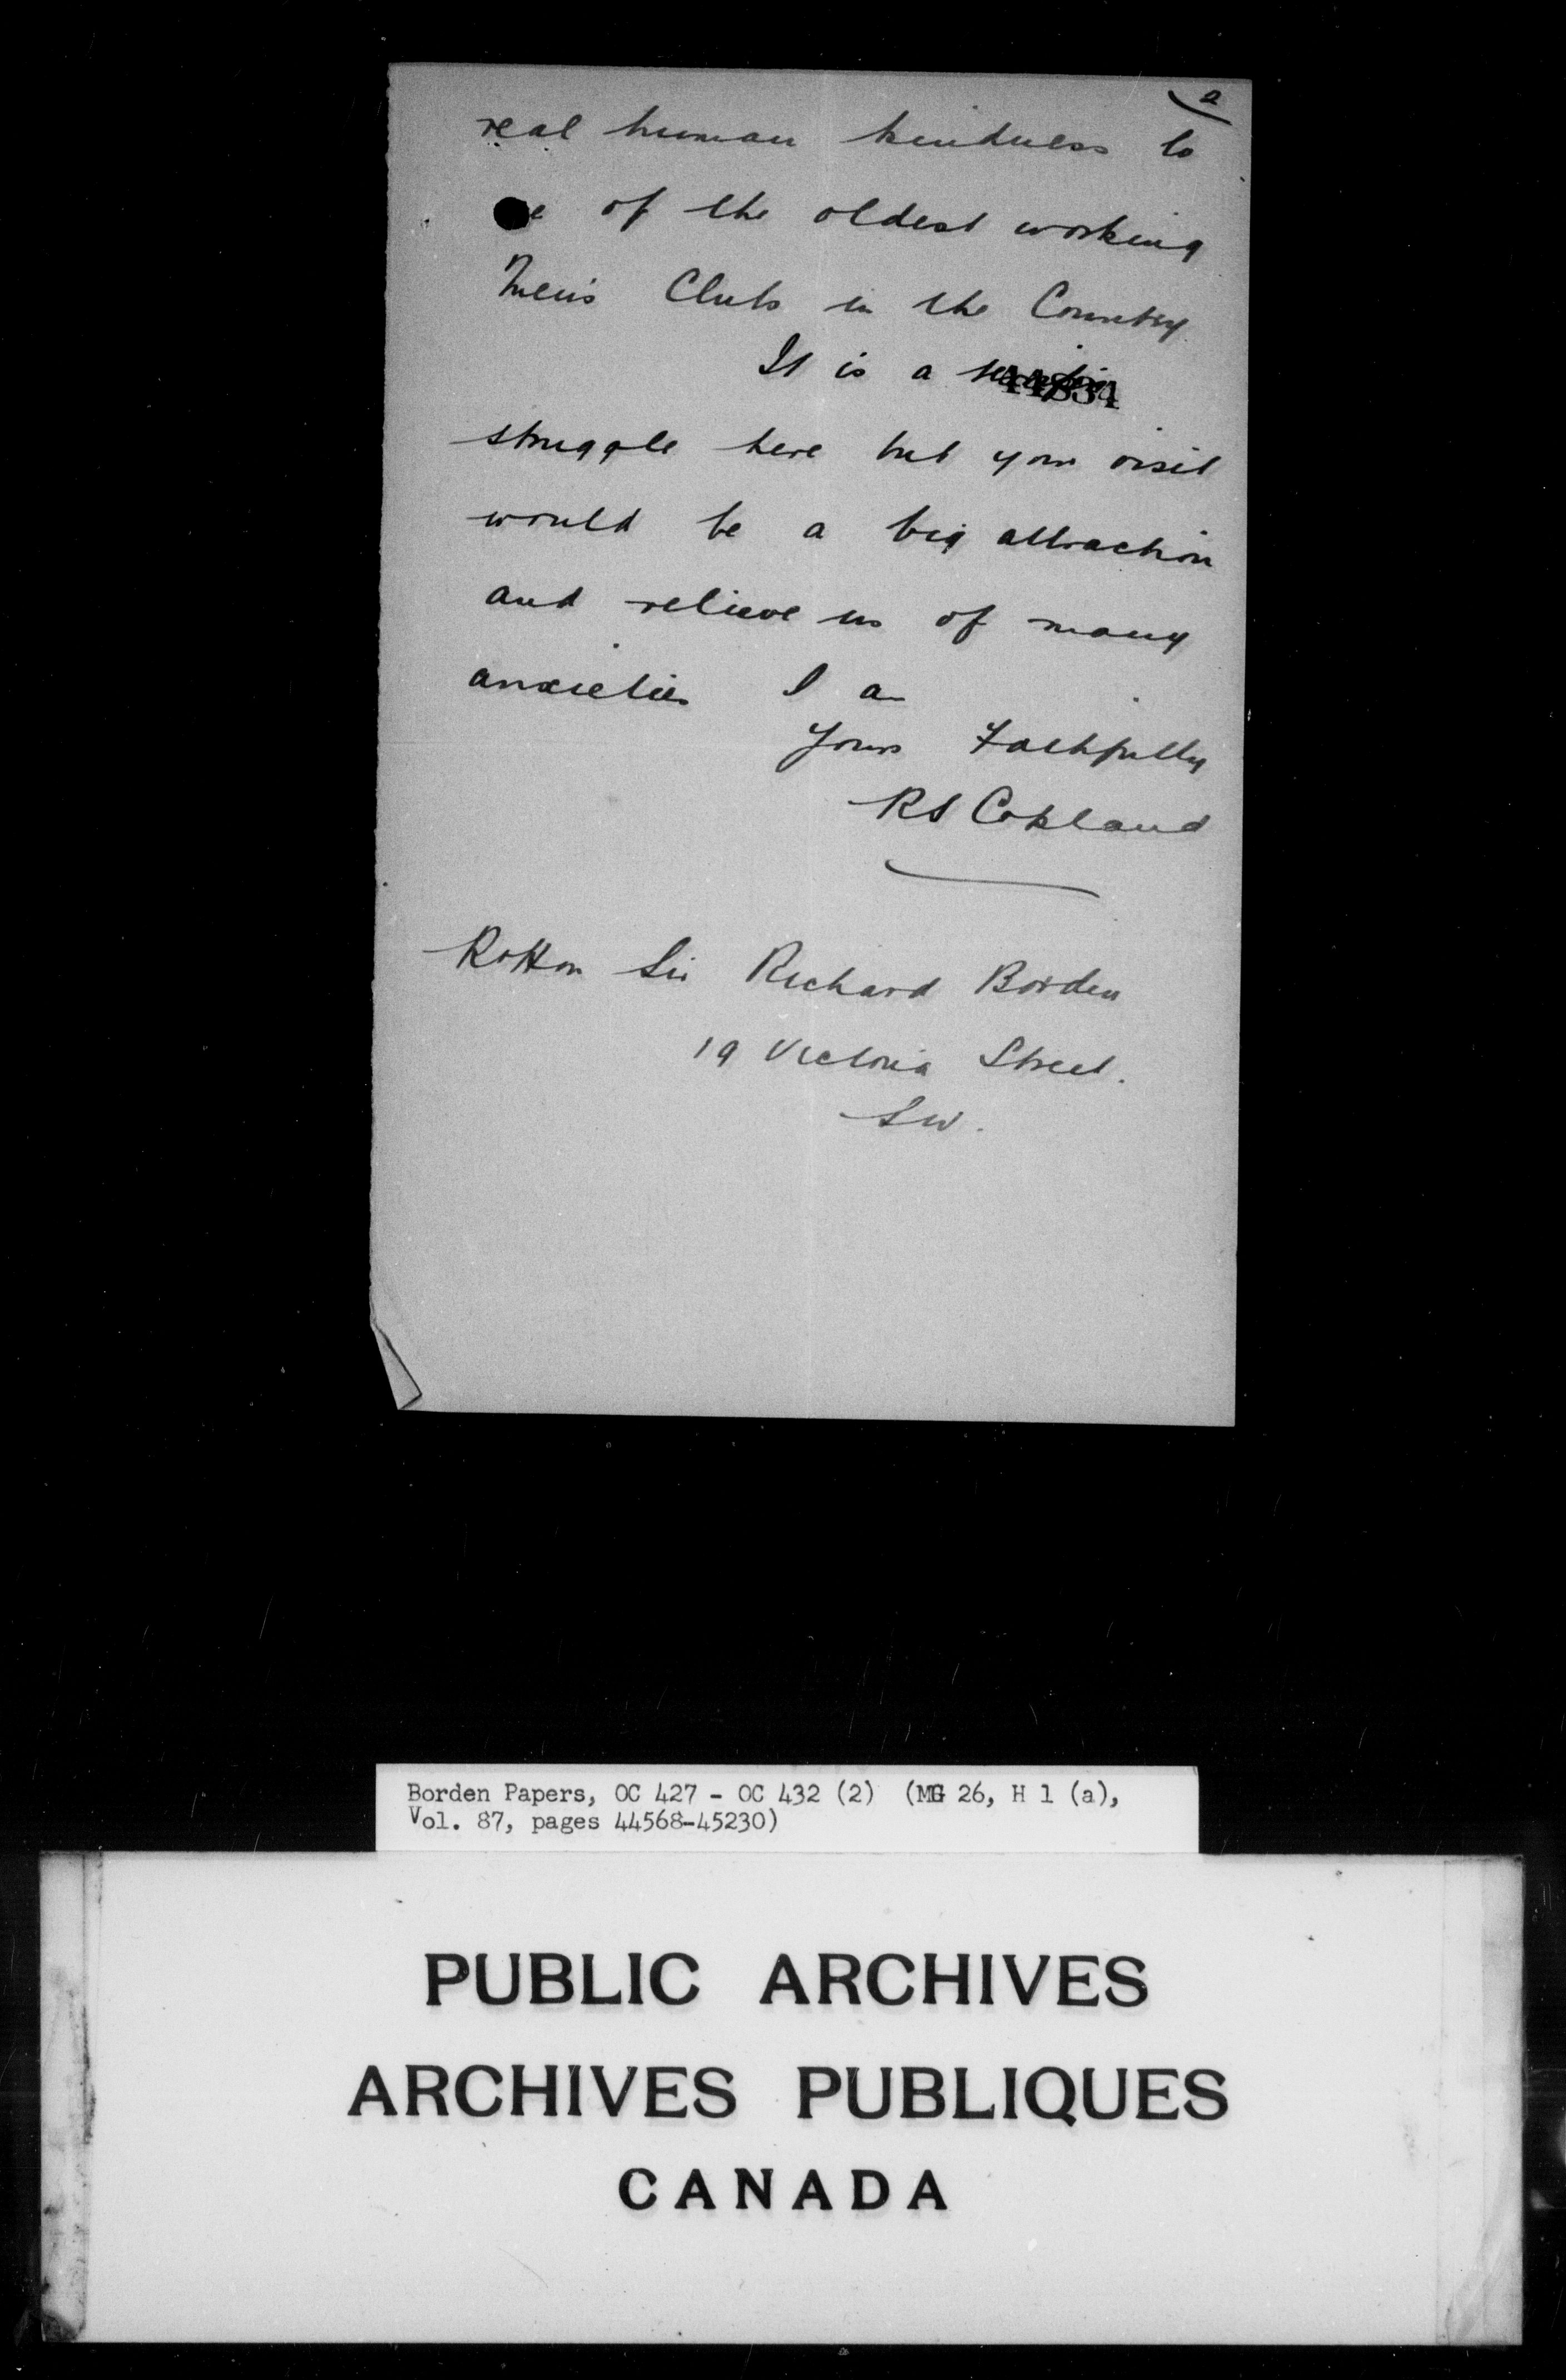 2
real human kindness to
of the oldest working
Men's Clubs in the Country
It is a
44834
struggle here but your visit
would be a big attraction
and relieve us of many
anxieties I am
Yours Faithfully
RS Copland
Rt Hon Sir Richard Borden
19 Victoria Street.
SW.
Borden Papers, OC 427 - OC 432 (2) (MG 26, H 1 (a),
Vol. 87, pages 44568-45230)
PUBLIC ARCHIVES
ARCHIVES PUBLIQUES
CANADA